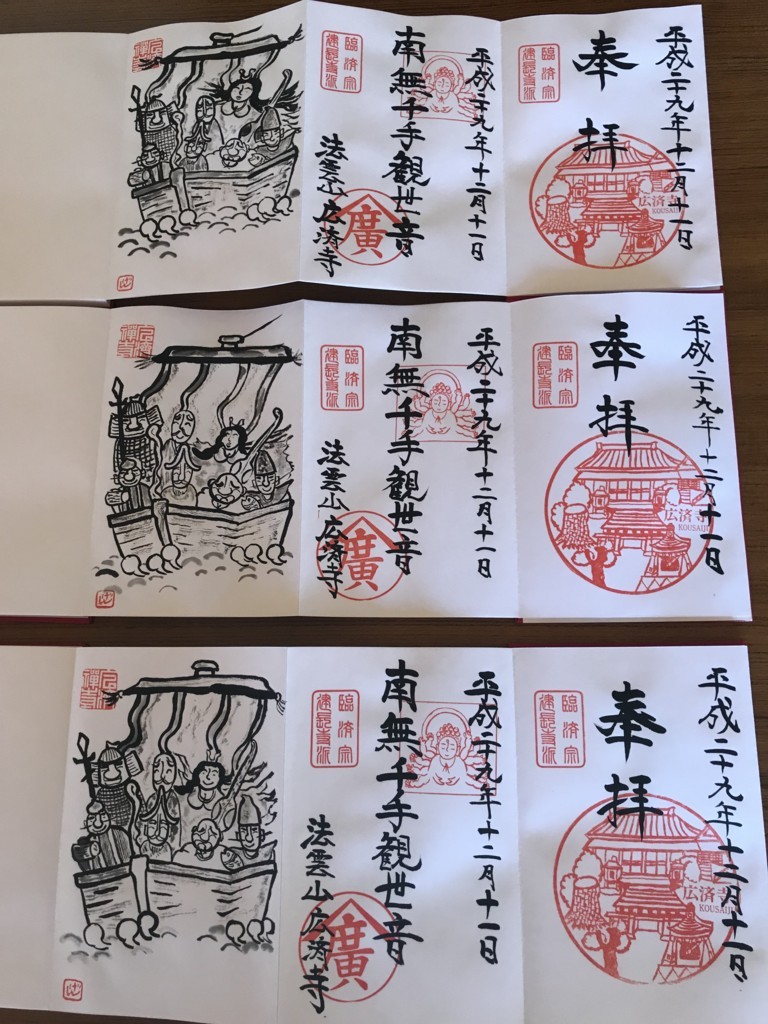 平成二十九年十二月十一日
奉拝
臨済宗
建長寺派
広済寺
KOUSAIJI
平成二十九年十二月十一日
南無千手観世音
臨済宗
建長寺派
法雲山広済寺
廣
平成二十九年十二月十一日
奉拝
臨済宗
建長寺派
広済寺
KOUSAIJI
平成二十九年十二月十一日
南無千手観世音
臨済宗
建長寺派
法雲山広済寺
廣
平成二十九年十二月十一日
奉拝
臨済宗
建長寺派
広済寺
KOUSAIJI
平成二十九年十二月十一日
南無千手観世音
臨済宗
建長寺派
法雲山広済寺
廣